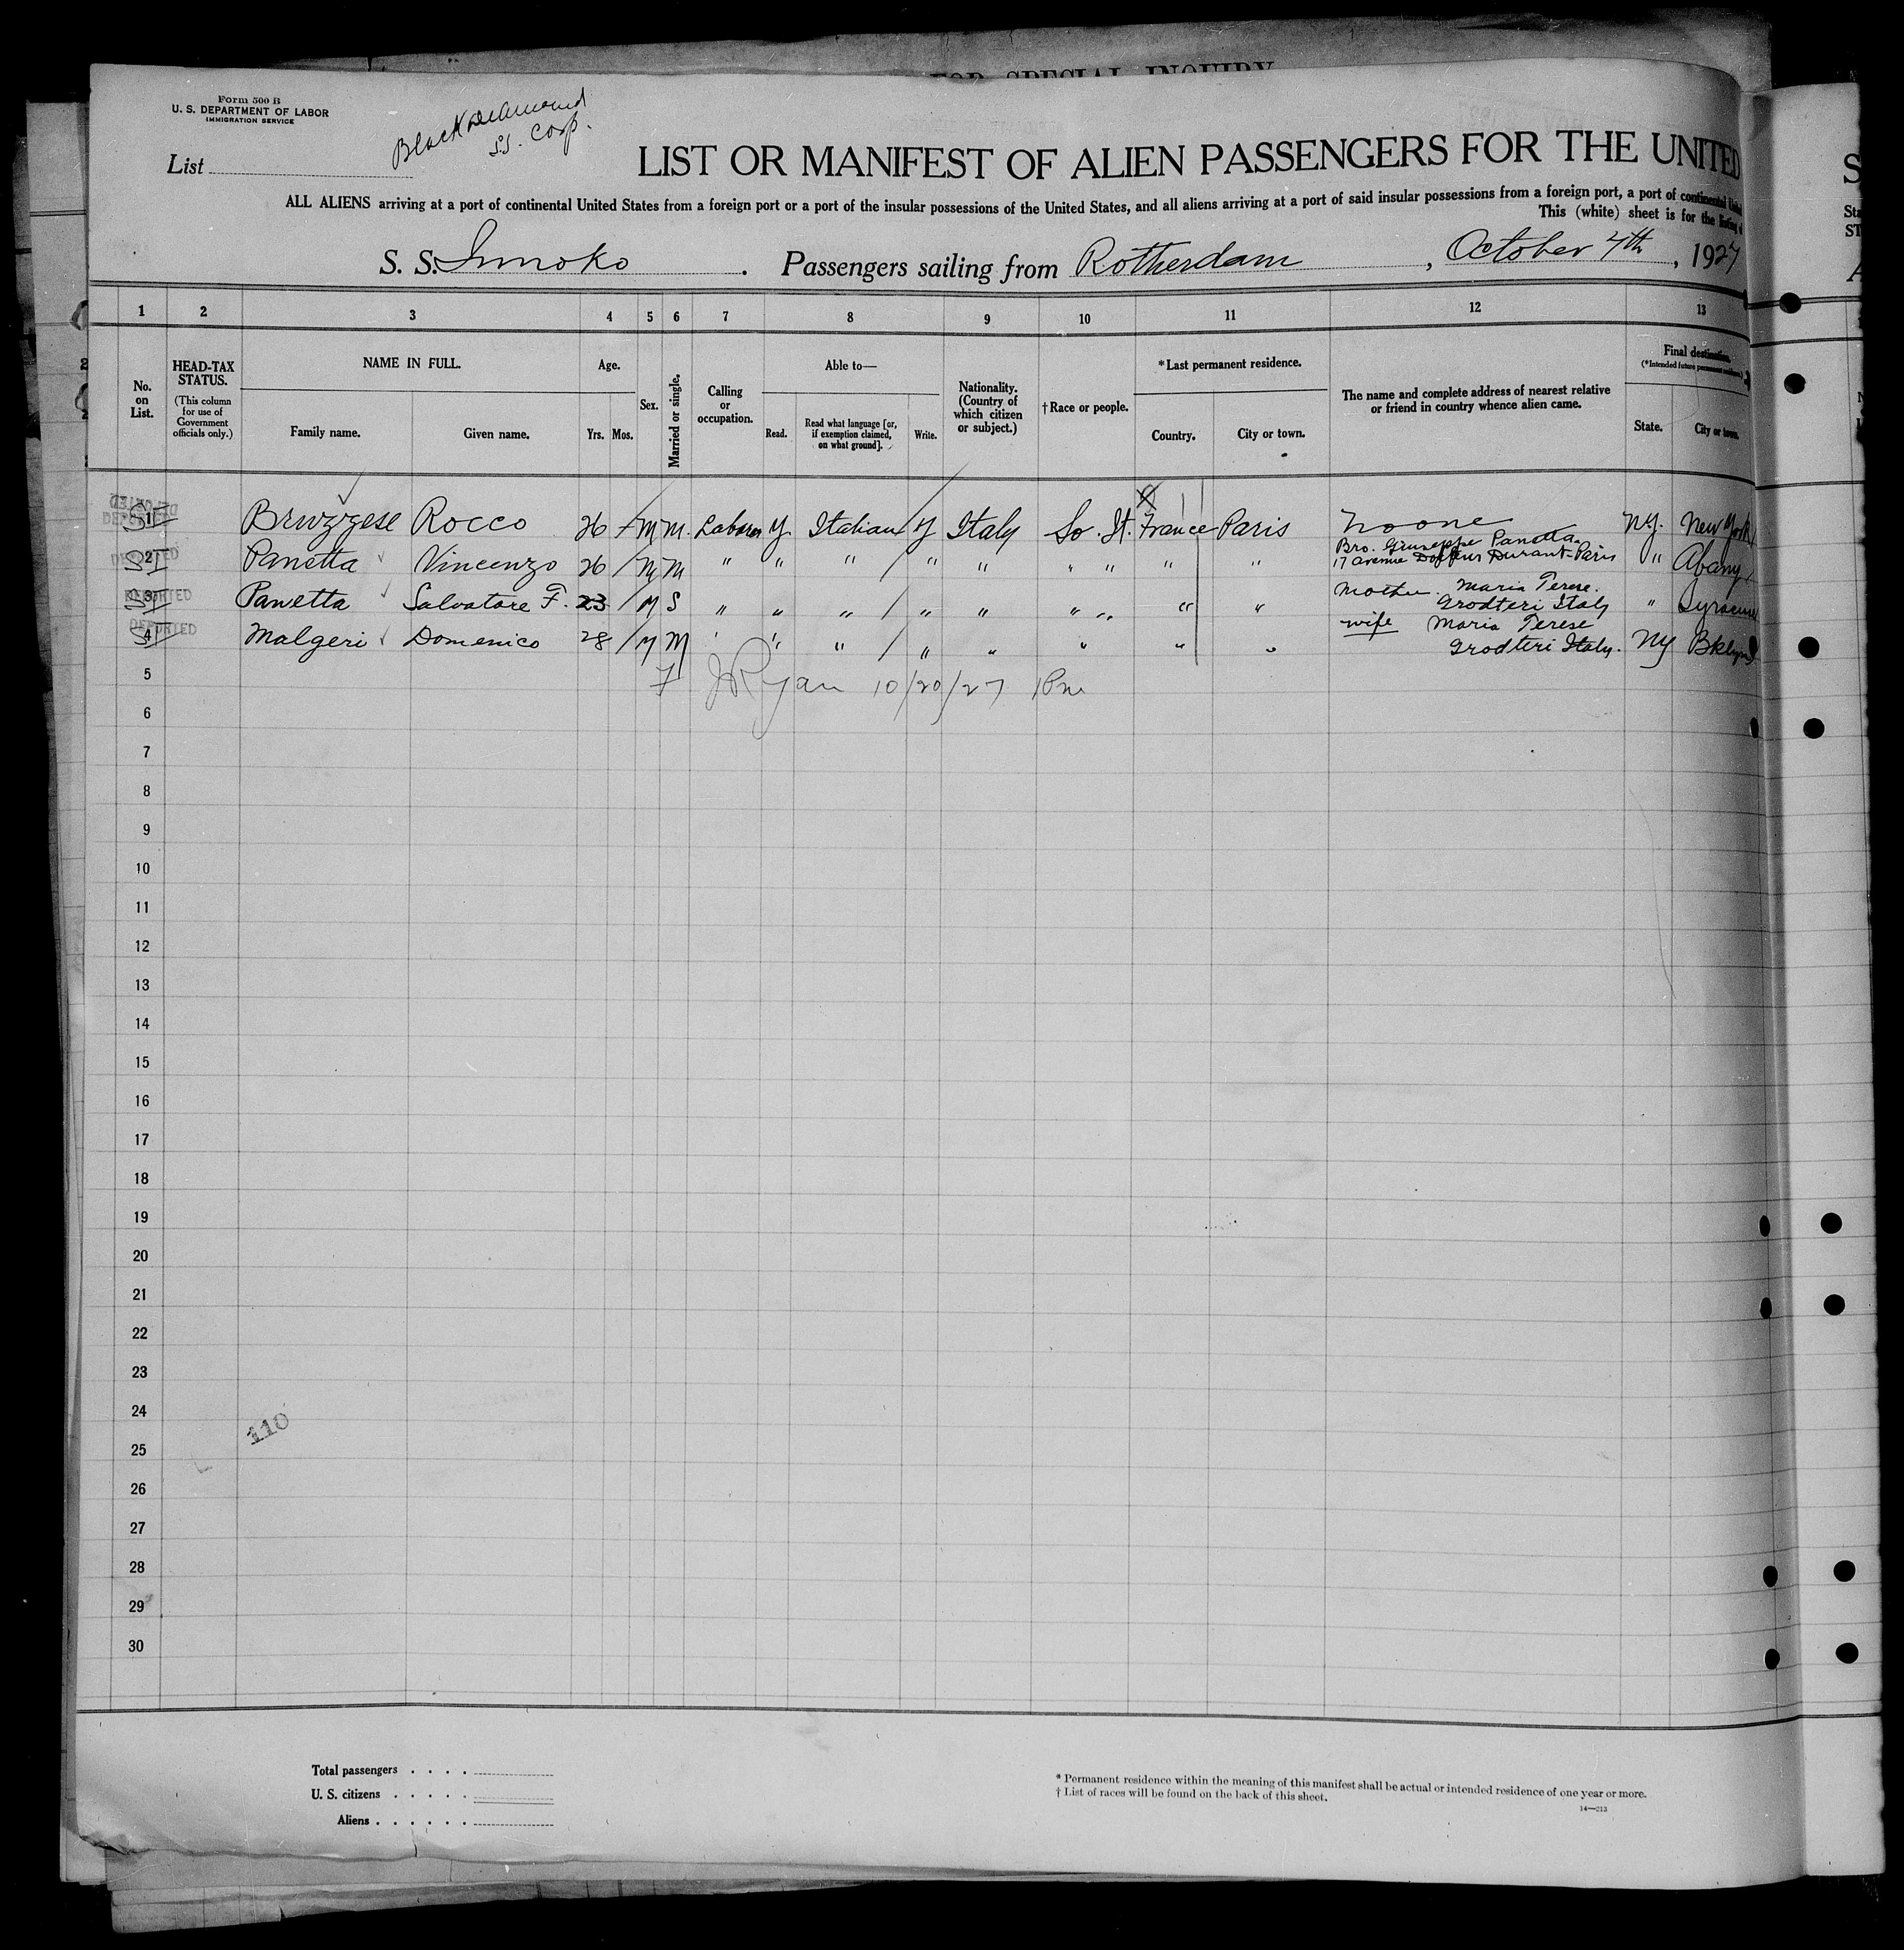 FOR SPECIAL INQUIRY
Form 500 B
U. S. DEPARTMENT OF LABOR
IMMIGRATION SERVICE
Black Diamond
S.S. Corp.
List
LIST OR MANIFEST OF ALIEN PASSENGERS FOR THE UNITED
ALL ALIENS arriving at a port of continental United States from a foreign port or a port of the insular possessions of the United States, and all aliens arriving at a port of said insular possessions from a foreign port, a port of continental
This (white) sheet is for the listing
S. S. Innoko . Passengers sailing from Rotherdam , October 4th , 1927
1 2 3 4 5 6 7 8 9 10 11 12 13
No. on List.
HEAD-TAX STATUS.
(This column for use of Government officials only.)
NAME IN FULL.
Family name. Given name.
Age.
Yrs. Mos.
Sex.
Married or single.
Calling or occupation.
Able to—
Read. Read what language [or, if exemption claimed, on what ground]. Write.
Nationality. (Country of which citizen or subject.)
†Race or people.
*Last permanent residence.
Country. City or town.
The name and complete address of nearest relative or friend in country whence alien came.
Final destination.
(*Intended future permanent residence.)
State. City or town.
DEPORTED
SI 1 Bruzzese Rocco 26 M M. Laborer Y Italian Y Italy So. It. France Paris noone N.Y. New York
DEPORTED
SI 2 Panetta Vincenzo 26 M M " " " " " " " " " Bro. Giuseppe Panetta. 17 avenue Durant Paris " Abany
DEPORTED
SI 3 Panetta Salvatore F. 23 M S " " " " " " " " " Mother. Maria Terese. Grodteri Italy " Syracuse
DEPORTED
SI 4 Malgeri Domenico 28 M M " " " " " " " " " wife Maria Terese Grodteri Italy. NY Bklyn
5 JRyan 10/20/27 1Pm
6
7
8
9
10
11
12
13
14
15
16
17
18
19
20
21
22
23
24
110
25
26
27
28
29
30
Total passengers . . . .
U. S. citizens . . . . .
Aliens . . . . . .
* Permanent residence within the meaning of this manifest shall be actual or intended residence of one year or more.
† List of races will be found on the back of this sheet.
14—213